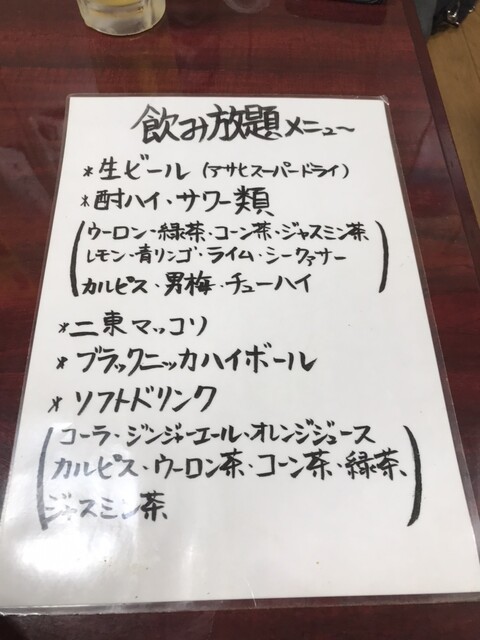 飲み放題メニュ〜
*生ビール（アサヒスーパードライ）
*酎ハイ・サワー類
(ウーロン・緑茶・コーン茶・ジャスミン茶
レモン・青リンゴ・ライム・シークァサー
カルピス・男梅・チューハイ)
*二東マッコリ
*ブラックニッカハイボール
*ソフトドリンク
(コーラ・ジンジャーエール・オレンジジュース
カルピス・ウーロン茶・コーン茶・緑茶、
ジャスミン茶)